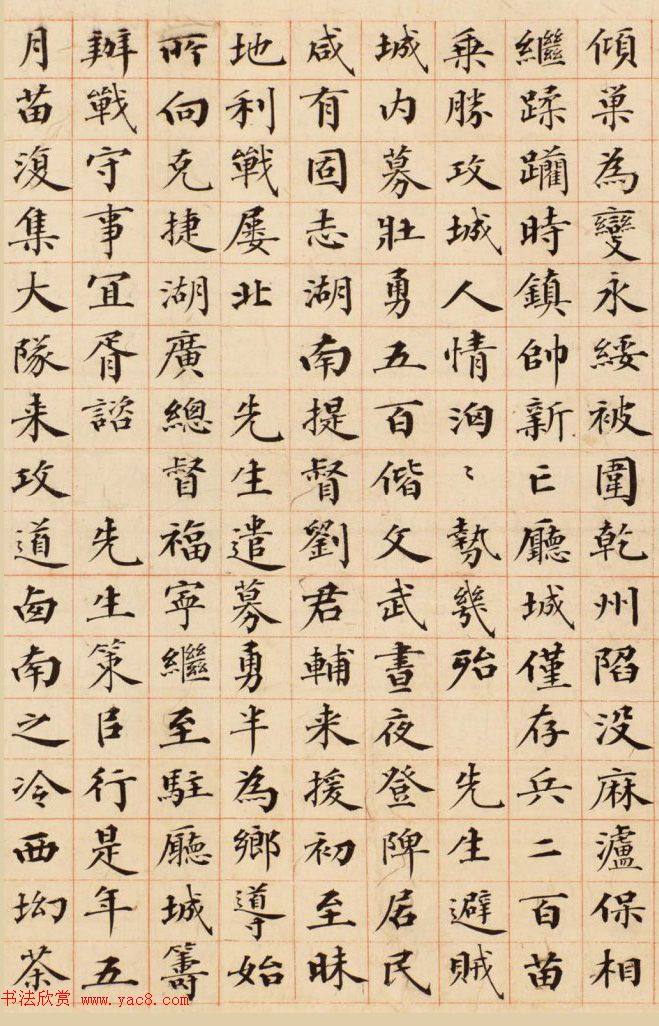 傾巢為變永綏被圍乾州陷没麻瀘保相
繼蹂躪時鎮帥新亡廳城僅存兵二百苗
乘勝攻城人情洶〻勢幾殆 先生避賊
城内募壯勇五百偕文武晝夜登陴居民
咸有固志湖南提督劉君輔来援初至昧
地利戰屡北 先生遣募勇半為鄉導始
所向克捷湖廣總督福寧繼至駐廳城籌
辦戰守事宜胥諮 先生策㠯行是年五
月苗復集大隊来攻道凾南之冷西坳茶
书法欣赏 www.yac8.com